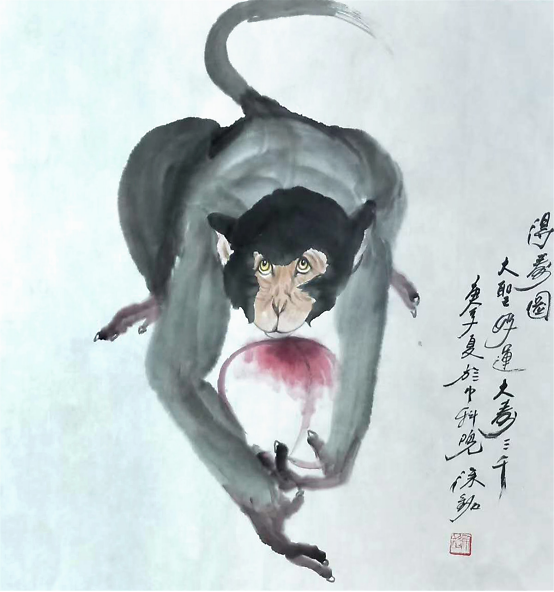 得寿圖
大聖好運大寿三千
庚子夏於中科院 徐